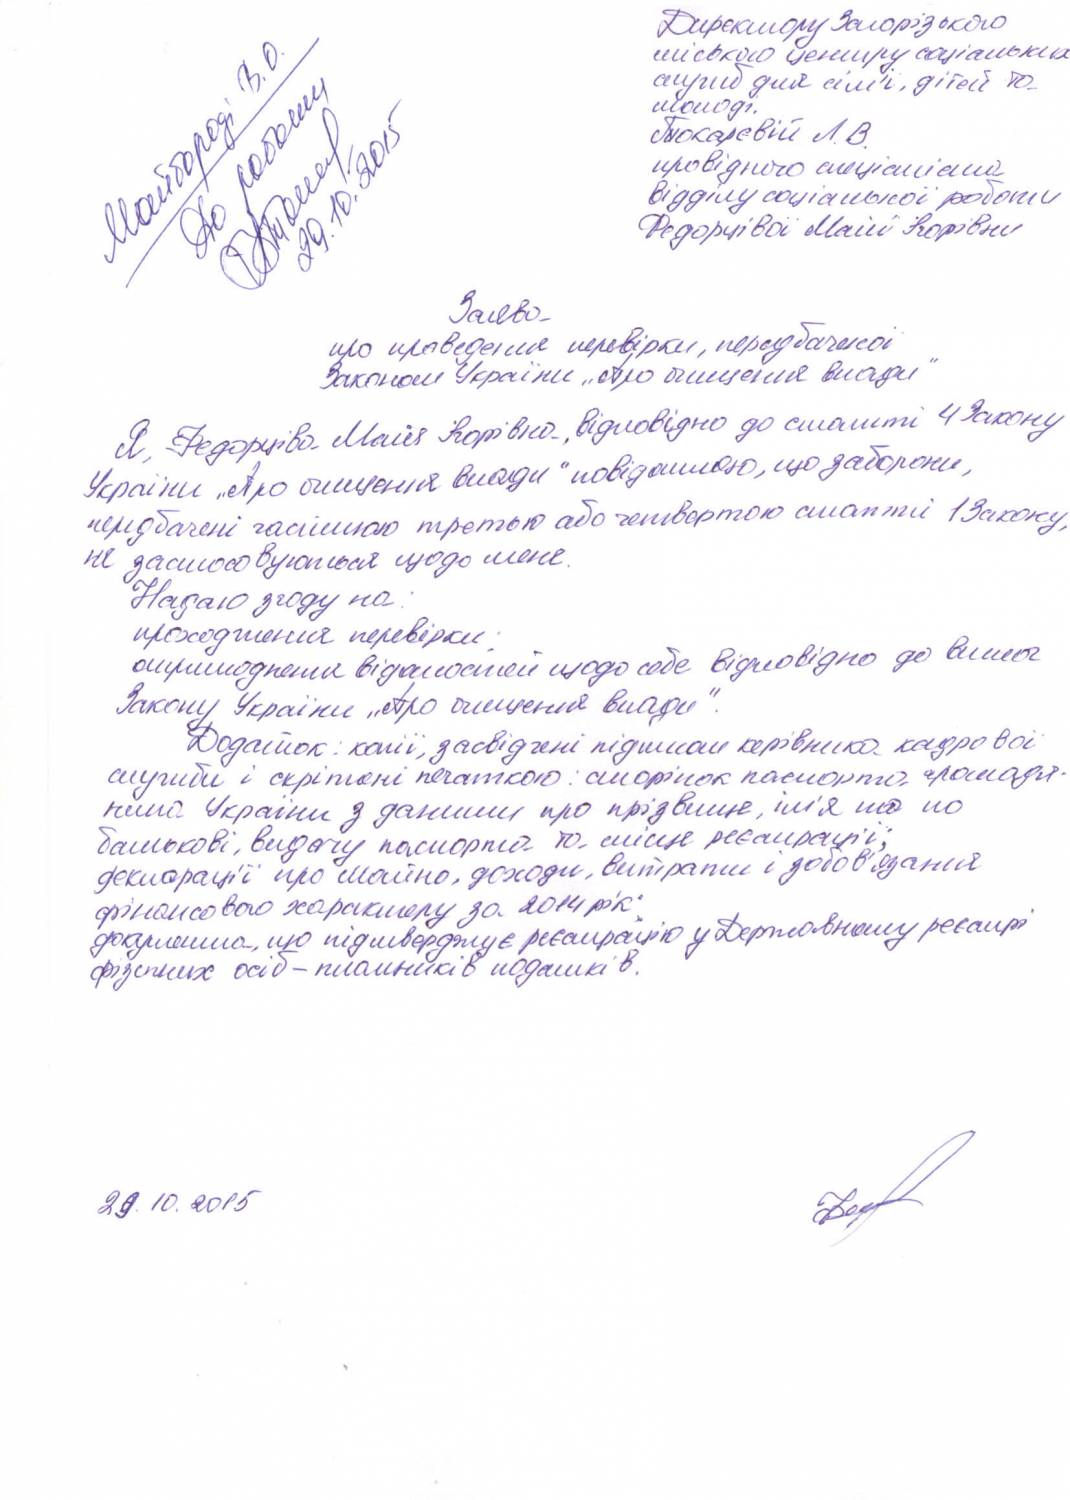 Майбороді В.О.
До роботи
29.10.2015
Директору Запорізького
міського центру соціальних
служб для сім'ї, дітей та
молоді.
Токарєвій Л.В.
провідного спеціаліста
відділу соціальної роботи
Федорцівої Майї Ігорівни
Заява
про проведення перевірки, передбаченої
Законом України „Про очищення влади"
Я, Федорціва Майя Ігорівна, відповідно до статті 4 Закону
України „Про очищення влади" повідомляю, що заборони,
передбачені частиною третьою або четвертою статті 1 Закону,
не застосовуються щодо мене.
Надаю згоду на:
проходження перевірки;
оприлюднення відомостей щодо себе відповідно до вимог
Закону України „Про очищення влади".
Додаток: копії, засвідчені підписом керівника кадрової
служби і скріплені печаткою: сторінок паспорта громадя-
нина України з даними про прізвище, ім'я та по
батькові, видачу паспорта та місце реєстрації;
декларації про майно, доходи, витрати і зобов'язання
фінансового характеру за 2014 рік;
документа, що підтверджує реєстрацію у Державному реєстрі
фізичних осіб – платників податків.
29.10.2015